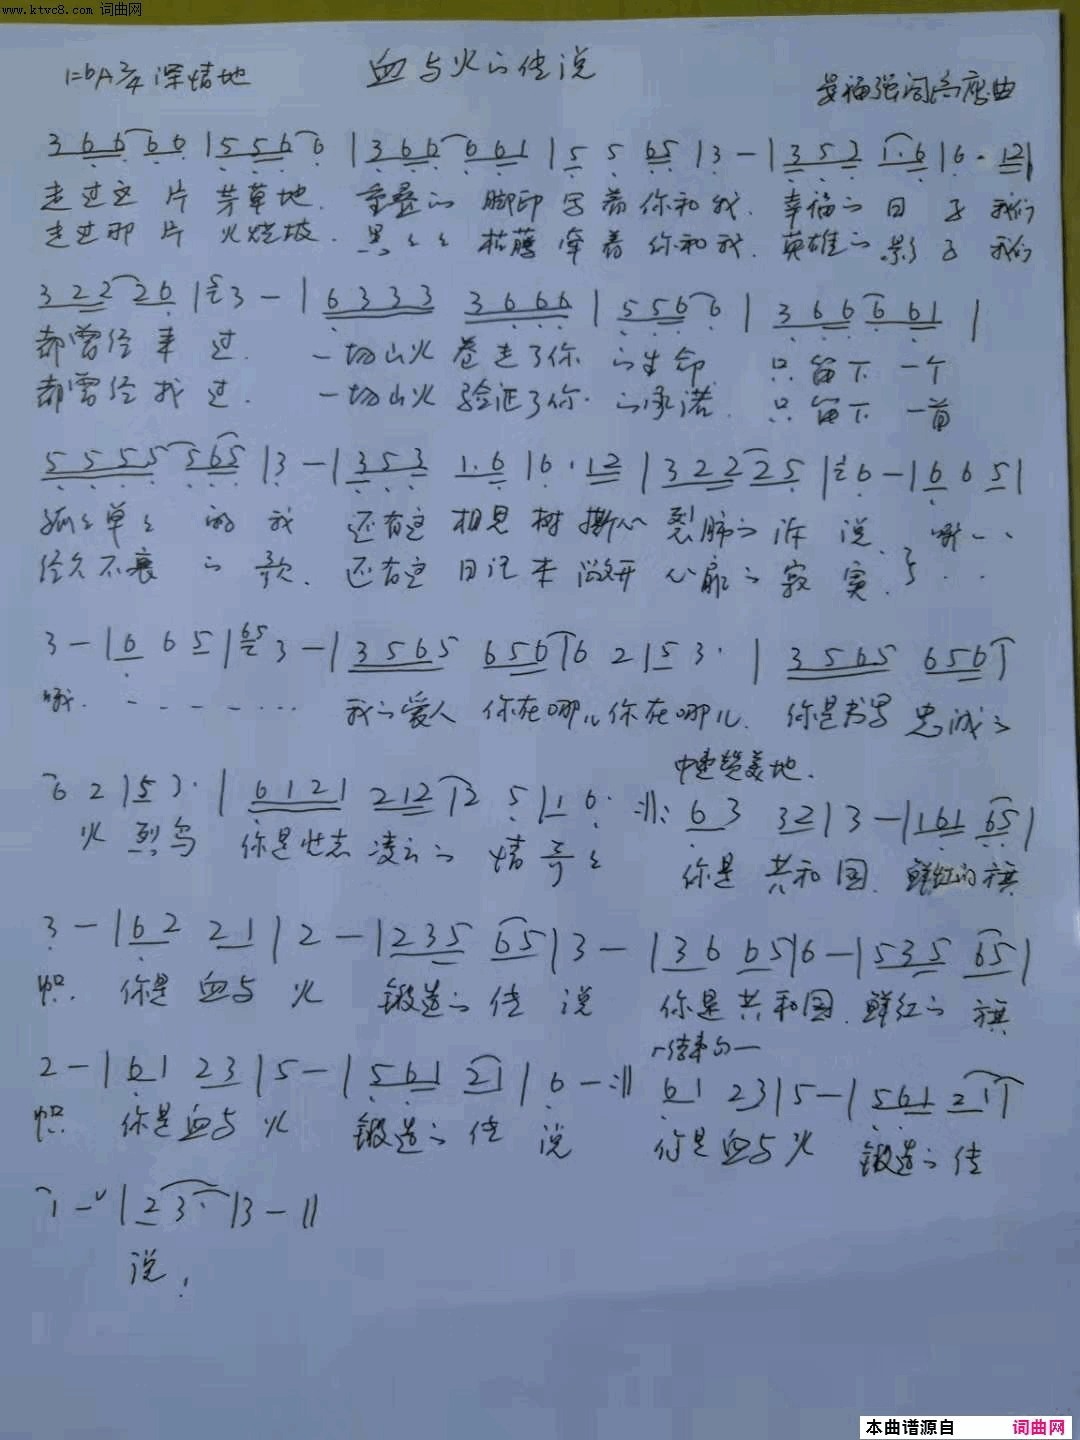 www.ktvc8.com 词曲网
血与火的传说
1=bA 2/4 深情地
走过这片茅草地. 重叠的脚印写着你和我. 幸福的日子我们
走过那片火烧坡. 黑黑的枯藤牵着你和我. 英雄的影子我们
3 2 2 2 6 | 3 - | 6 3 3 3 3 6 6 6 | 5 5 6 6 | 3 6 6 6 6 1 |
都曾经来过. 一场山火卷走了你的生命 只留下一个
都曾经找过. 一场山火验证了你的承诺. 只留下一首
5 5 5 5 5 6 5 | 3 - | 3 5 3 1. 6 | 6. 1 2 | 3 2 2 2 5 | 6 - | 6 6 5 |
孤孤单单的我 还有这相思树撕心裂肺的诉说.
经久不衰的歌. 还有这日记本敞开心扉的寂寞.
3 - | 6 6 5 | 3 - | 3 5 6 5 6 5 6 1 | 6 2 | 5 3. | 3 5 6 5 6 5 6 1
我的爱人你在哪儿你在哪儿. 你是书写忠诚的
中速赞美地.
6 2 | 5 3. | 6 1 2 1 2 1 2 | 2 5 | 1 6. :||: 6 3 3 2 | 3 - | 1 6 1 6 5 |
火烈鸟 你是壮志凌云的 你是共和国. 鲜红的旗
3 - | 6 2 2 1 | 2 - | 2 3 5 6 5 | 3 - | 3 6 6 5 | 6 - | 5 3 5 6 5 |
帜. 你是血与火 锻造的传说 你是共和国. 鲜红的旗
结束句
2 - | 6 1 2 3 | 5 - | 5 6 1 2 1 | 6 - :|| 6 1 2 3 | 5 - | 5 6 1 2 1
帜 你是血与火 锻造的传说 你是血与火 锻造的传
1 - | 2 3. | 3 - ||
说.
本曲谱源自 词曲网